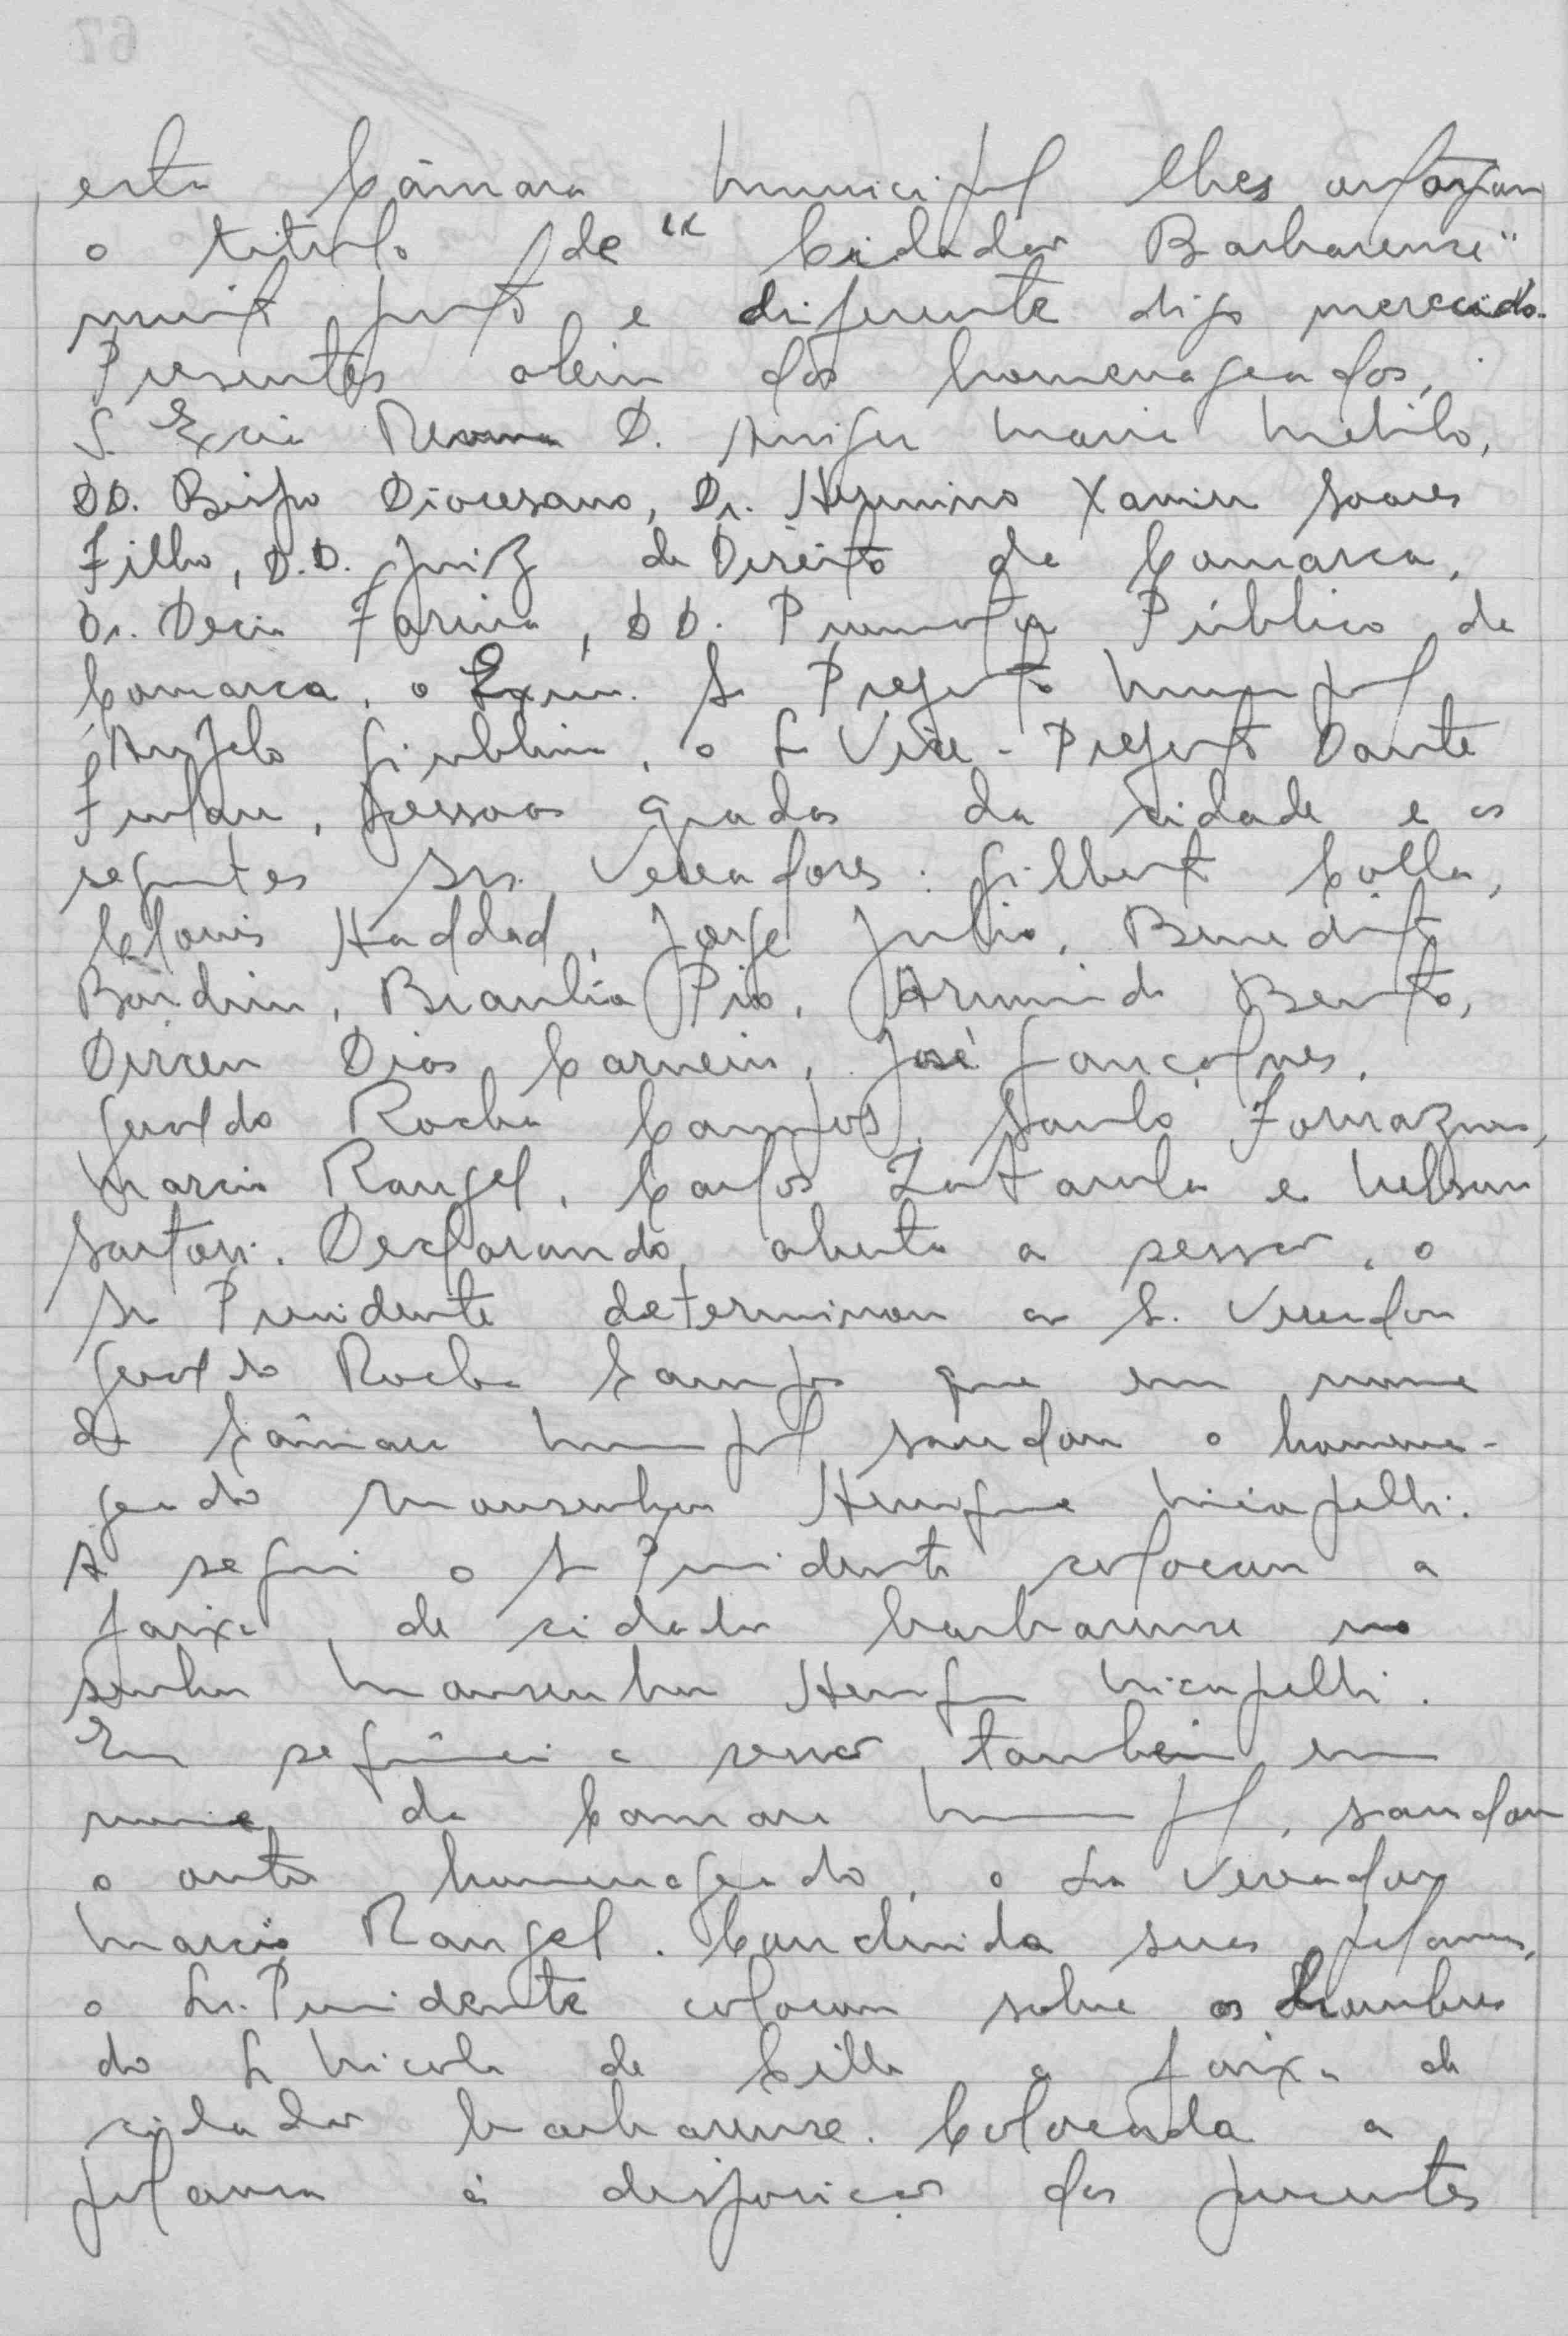 esta Câmara Municipal lhes outorgam
o titulo de "Cidadão Barbarense"
muito justo e diferente digo merecido.
Presentes além dos homenageados,
S. Excia Revma D. Aniger Maria Melilo,
DD. Bispo Diocesano, Dr. Herminio Xavier Soares
Filho, D.D. Juiz de Direito da Comarca,
Dr. Decio Farina, DD. Promotor Público da
Comarca, o Exmo. Sr Prefeito Municipal
Angelo Giubbina, o Sr Vice-Prefeito Dante
Furlan, pessoas gradas da cidade e os
seguintes Srs. Vereadores: Gilberto Colla,
Clovis Haddad, Jorge Julio, Benedito
Bordin, Braulio Pio, Armindo Bento,
Dirceu Dias Carneiro, José Gonçalves,
Geraldo Rocha Campos, Santo Fornazin,
Marcio Rangel, Carlos Zatarola e Nelson
Sartori. Declarando aberta a sessão, o
Sr Presidente determinou ao S. Vereador
Geraldo Rocha Campos que em nome
da Câmara Municipal saudou o homena-
geado Monsenhor Henrique Nicopelli.
A seguir o Sr Presidente colocou a
faixa de cidadão barbarense no
senhor Monsenhor Henrique Nicopelli.
Em seguência a sessão, também em
nome da Camara Municipal, saudou
o outro homenageado, o Sr Vereador
Marcio Rangel. Concluida suas palavras,
o Sr. Presidente colocou sobre os ombros
do Sr Nicola de Cillo a faixa de
cidadão barbarense. Colocada a
palavra á disposição dos presentes